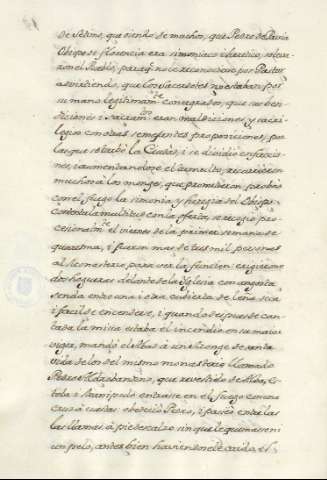 de Setimo, que siendo de muchos, que Pedro de Pavia
Obispo de florencia era simoniaco i heretico, solevan
con el Pueblo, para q.^e no le reconociese por Pastor
advirtiendo, que los Sacerdotes no estaban por
su mano legitimam.^te consagrados, que sus bendi-
ciones i Sacram.^tos eran maldiciones, y sacri-
legios con otras semejantes proposiciones, por
las que se turbó la Ciudad, i se dividio en faccio-
nes, i aumentandose el tumulto, recurrieron
muchos à los monges, que prometieron probar
con el fuego la simonia, y heregia del Obispo.
Contenta la multitud con la oferta, se recogio pro-
cesionalm.^te el viernes de la primer semana de
quaresma, i fueron mas de tres mil personas
al Monasterio para ver la funcion: erigieron
dos hogueras delante de la Iglesia con angosta
senda entre una i otra cubierta de leña seca
i facil de encenderse, i quando despues de can-
tada la misa estaba el incendio en su maior
vigor, mandó el Abad à un Monge de santa
vida de los del mismo monasterio llamado
Pedro Aldobrandino, que revestido de Alba, Es-
tola i Manipulo entrase en el fuego con una
cruz à cuestas: obedeció Pedro, i paseo entre las
las llamas à pie descalzo sin que le quemasen ni
un pelo, antes bien haviendosele caido, el